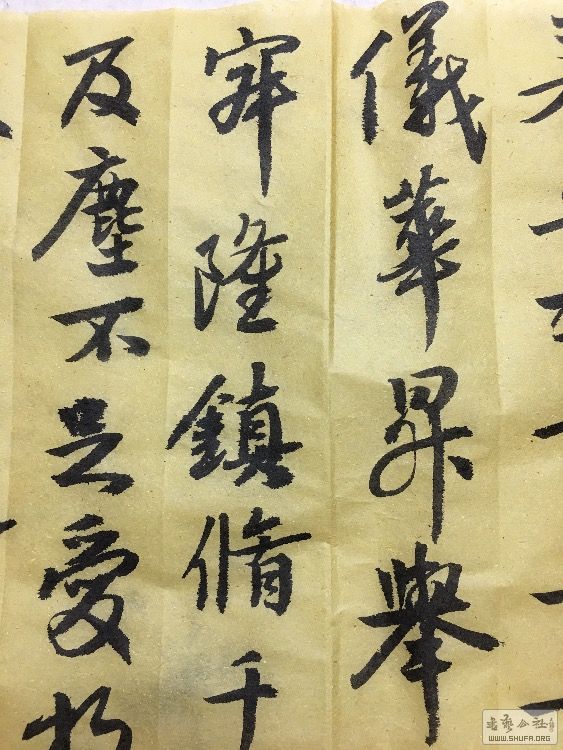 儀華昇舉
隆鎮脩千
及塵不足愛
書藝公社
WWW.SHUFA.ORG